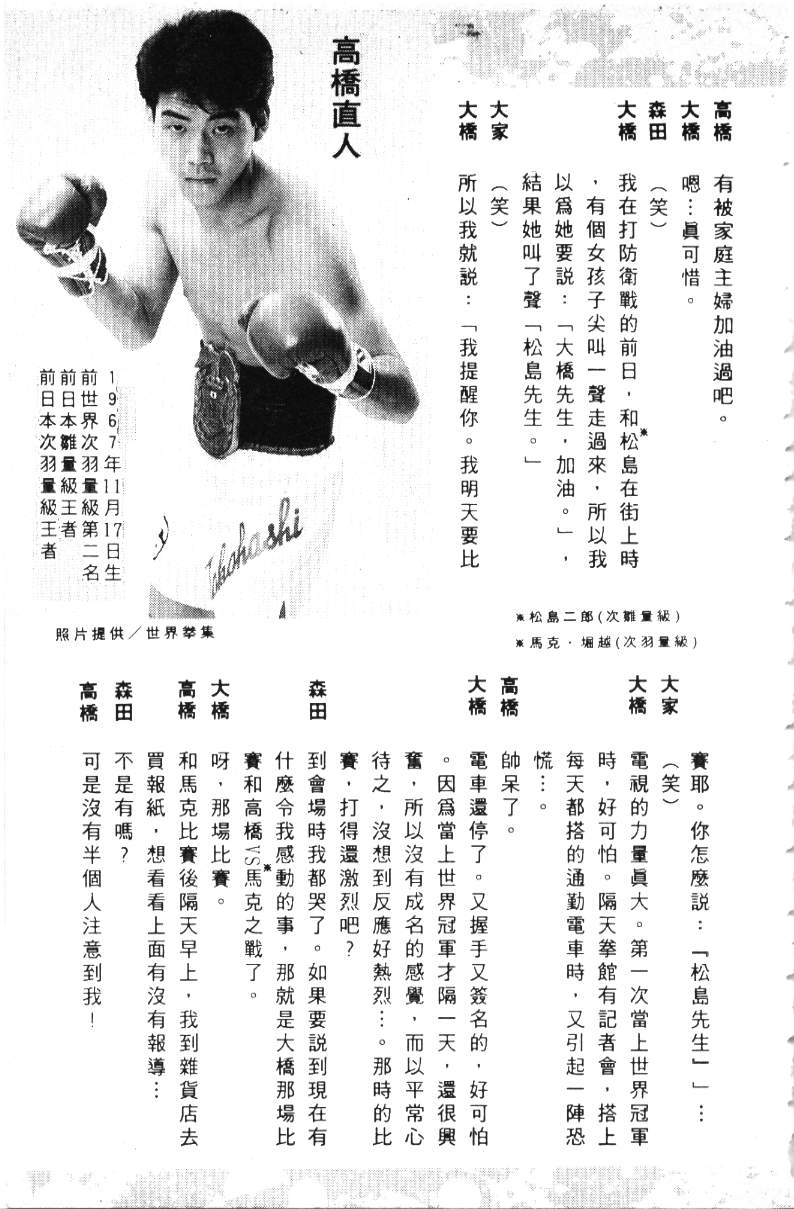 高橋　有被家庭主婦加油過吧。
大橋　嗯…眞可惜。
森田　（笑）
大橋　我在打防衛戰的前日，和松島※在街上時
，有個女孩子尖叫一聲走過來，所以我
以爲她要說：「大橋先生，加油。」，
結果她叫了聲「松島先生。」
大家　（笑）
大橋　所以我就說：「我提醒你。我明天要比
高橋直人
Takahashi
1967年11月17日生
前世界次羽量級第二名
前日本雛量級王者
前日本次羽量級王者
照片提供／世界拳集
※松島二郎(次雛量級)
※馬克・堀越(次羽量級)
賽耶。你怎麼說：『松島先生』」…
大家　（笑）
大橋　電視的力量眞大。第一次當上世界冠軍
時，好可怕。隔天拳館有記者會，搭上
每天都搭的通勤電車時，又引起一陣恐
慌…。
高橋　帥呆了。
大橋　電車還停了。又握手又簽名的，好可怕
。因爲當上世界冠軍才隔一天，還很興
奮，所以沒有成名的感覺，而以平常心
待之，沒想到反應好熱烈…。那時的比
賽，打得還激烈吧？
森田　到會場時我都哭了。如果要說到現在有
什麼令我感動的事，那就是大橋那場比
賽和高橋VS馬克※之戰了。
大橋　呀，那場比賽。
高橋　和馬克比賽後隔天早上，我到雜貨店去
買報紙，想看看上面有沒有報導…
森田　不是有嗎？
高橋　可是沒有半個人注意到我！